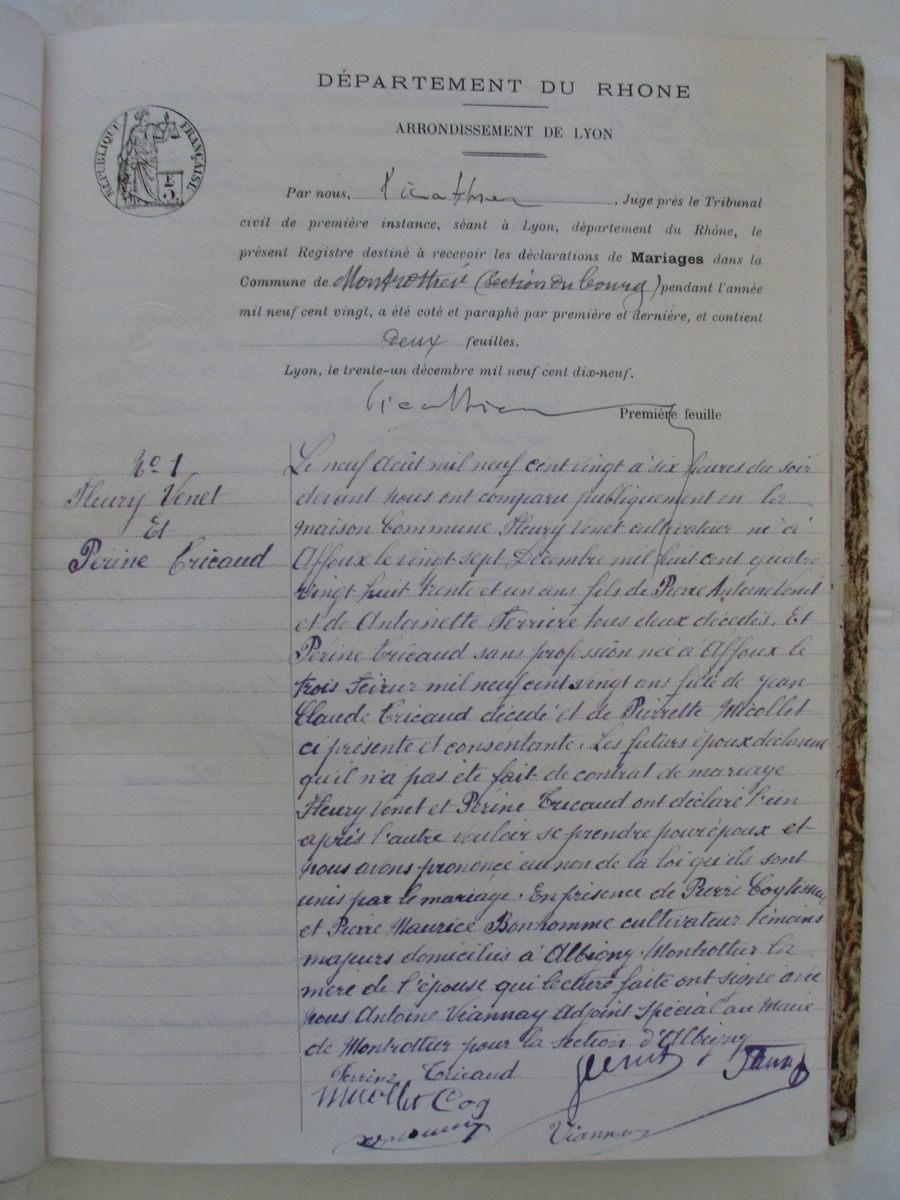 DÉPARTEMENT DU RHONE
ARRONDISSEMENT DE LYON
RÉPUBLIQUE FRANÇAISE
Par nous, , Juge près le Tribunal
civil de première instance, séant à Lyon, département du Rhône, le
présent Registre destiné à recevoir les déclarations de Mariages dans la
Commune de Montrottier (Section du bourg) pendant l'année
mil neuf cent vingt, a été coté et paraphé par première et dernière, et contient
deux feuilles.
Lyon, le trente-un décembre mil neuf cent dix-neuf.
Première feuille
No 1
Fleury Venet
Et
Perine Tricaud
Le neuf Août mil neuf cent vingt à six heures du soir
devant nous ont comparu publiquement en la
maison Commune Fleury Venet cultivateur né à
Affoux le vingt sept Décembre mil huit cent quatre
vingt huit trente et un ans fils de Pierre Antoine Venet
et de Antoinette Ferrière tous deux décédés. Et
Périne Tricaud sans profession née à Affoux le
trois mil neuf cent vingt ans fille de Jean
Claude Tricaud décédé et de Pierrette Micollet
ci présente et consentante. Les futurs époux déclarent
qu'il n'a pas été fait de contrat de mariage
Fleury Venet et Périne Tricaud ont déclaré l'un
après l'autre vouloir se prendre pour époux et
nous avons prononcé au nom de la loi qu'ils sont
unis par le mariage. En présence de Pierre
et Pierre Maurice Bonhomme cultivateur témoins
majeurs domiciliés à Albigny Montrottier la
mère de l'épouse qui lecture faite ont signé avec
nous Antoine Viannay Adjoint Spécial au Maire
de Montrottier pour la section d'Albigny
Perrine Tricaud
Micollet Cog
Viannay